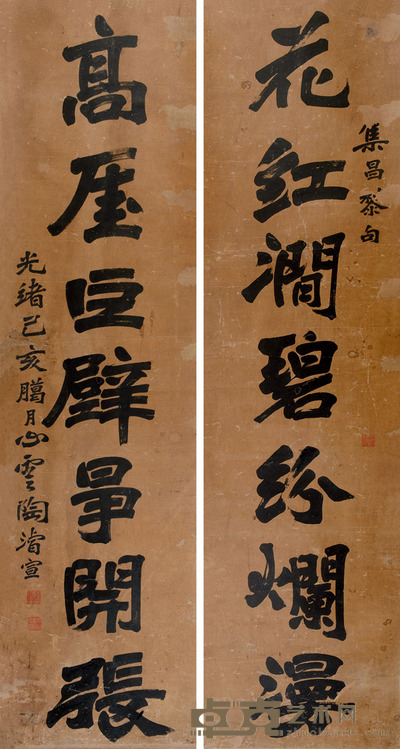 花紅澗碧紛爛漫
集昌黎句
高厓巨壁爭開張
光緒己亥臘月心雲陶濬宣
卓克艺术网